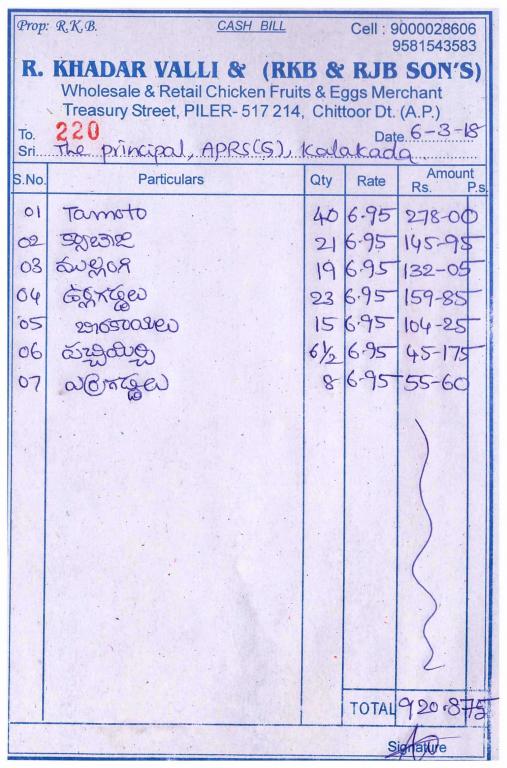 Prop: R.K.B. CASH BILL Cell : 9000028606
9581543583
R. KHADAR VALLI & (RKB & RJB SON'S)
Wholesale & Retail Chicken Fruits & Eggs Merchant
Treasury Street, PILER- 517 214, Chittoor Dt. (A.P.)
To. 220 Date 6-3-18
Sri. The principal, APRS(G), Kalakada
S.No. Particulars Qty Rate Amount
Rs. P.s.
01 Tamoto 40 6.95 278-00
02 21 6.95 145-95
03 ముల్లంగి 19 6.95 132-05
04 ఉర్లగడ్డలు 23 6.95 159-85
05 15 6.95 104-25
06 పచ్చిమిర్చి 6½ 6.95 45-175
07 ఎర్రగడ్డలు 8 6.95 55-60
TOTAL 920.875
Signature